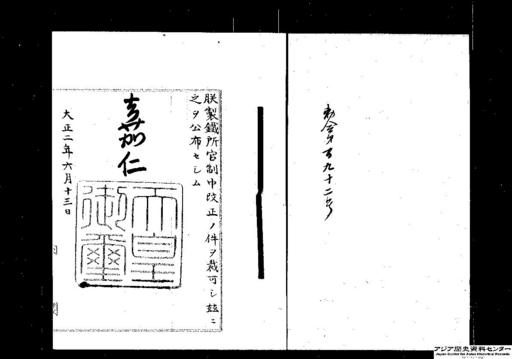 勅令第百九十二号
朕製鐵所官制中改正ノ件ヲ裁可シ茲ニ
之ヲ公布セシム
嘉仁
天皇御璽
大正二年六月十三日
内閣
アジア歴史資料センター
Japan Center for Asian Historical Records